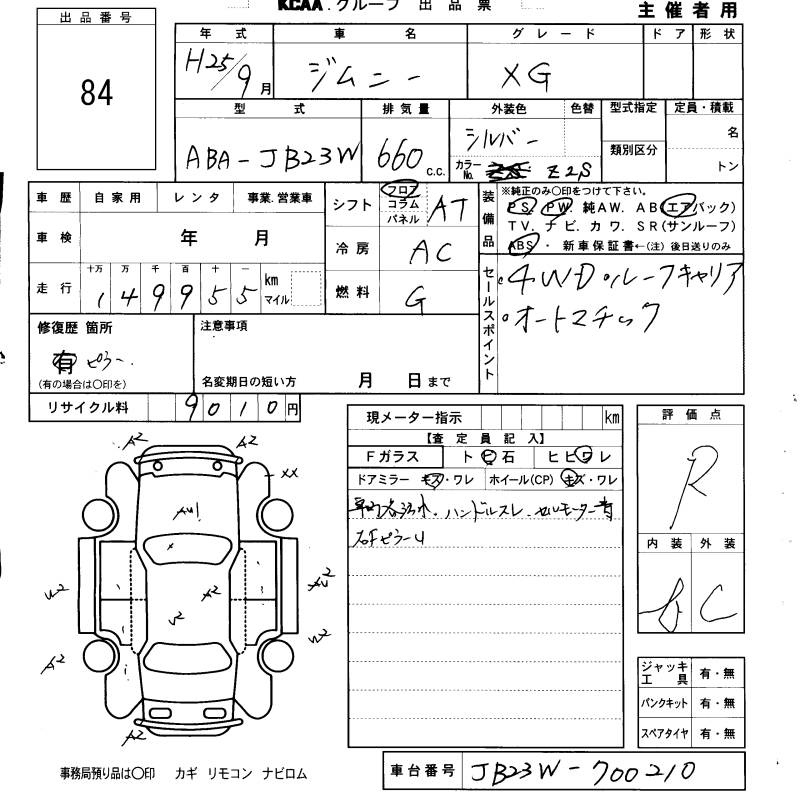 KCAA. グループ 出品票
主催者用
出品番号
84
年式 車名 グレード ドア 形状
H25/9月 ジムニー XG
型式 排気量 外装色 色替 型式指定 定員・積載
ABA-JB23W 660 c.c. シルバー 名
類別区分
カラーNo. Z2S トン
車歴 自家用 レンタ 事業.営業車
車検 年 月
走行 十万 万 千 百 十 一
149955 km マイル
シフト フロア コラム パネル AT
冷房 AC
燃料 G
装備品
※純正のみ〇印をつけて下さい。
PS. PW. 純AW. AB(エアバック)
TV. ナビ. カワ. SR(サンルーフ)
ABS・ 新車保証書←(注) 後日送りのみ
セールスポイント
・4WD・ルーフキャリア
・オートマチック
修復歴 箇所
有 ピラー.
(有の場合は〇印を)
注意事項
名変期日の短い方 月 日まで
リサイクル料 9010円
現メーター指示 km
【査定員記入】
Fガラス ト ビ 石 ヒビワレ
ドアミラー キズ・ワレ ホイール(CP) キズ・ワレ
ハンドルスレ. セルモーター音
右FピラーU
評価点
R
内装 外装
C
ジャッキ工具 有・無
パンクキット 有・無
スペアタイヤ 有・無
A2 A2
XX
AU1
U2 A2 AU2
U2
A2
A2
事務局預り品は〇印 カギ リモコン ナビロム
車台番号 JB23W-700210